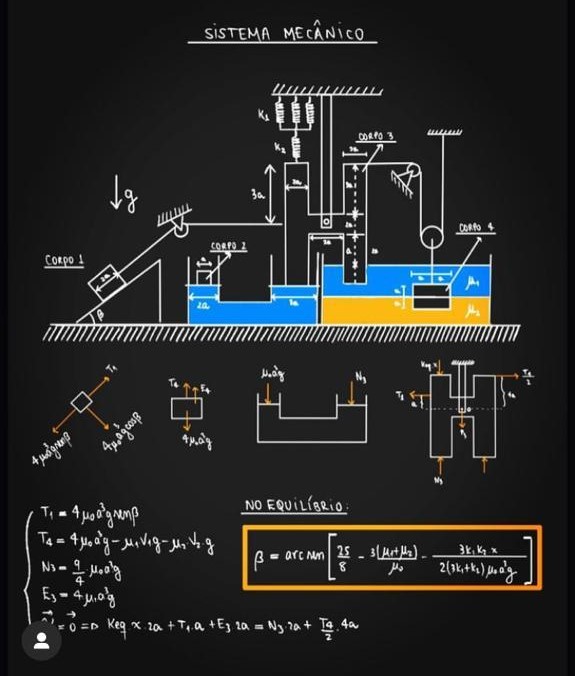 SISTEMA MECÂNICO
K₁
K₂
CORPO 3
3a
3a
2a
3a
↓g
CORPO 4
CORPO 1
2a
β
CORPO 2
a
2a
3a
3a
a
2a
a
a
μ₁
μ₂
T₁
4μ₀a³g senβ
4μ₀a³g cosβ
T₄
E₄
4μ₀a³g
μ₀a³g
N₃
Keq x
T₁
a
T₄/2
4a
N₃
T₁ = 4μ₀a³g senβ
T₄ = 4μ₀a³g - μ₁V₁g - μ₂V₂.g
N₃ = 9/4 . μ₀a³g
E₃ = 4μ₁a³g
= 0 ⇒ Keq x.2a + T₁.a + E₃.2a = N₃.2a + T₄/2 . 4a
NO EQUILÍBRIO:
β = arc sen [ 25/8 - 3(μ₁+μ₂)/μ₀ - 3K₁K₂x/2(3K₁+K₂)μ₀a³g ]